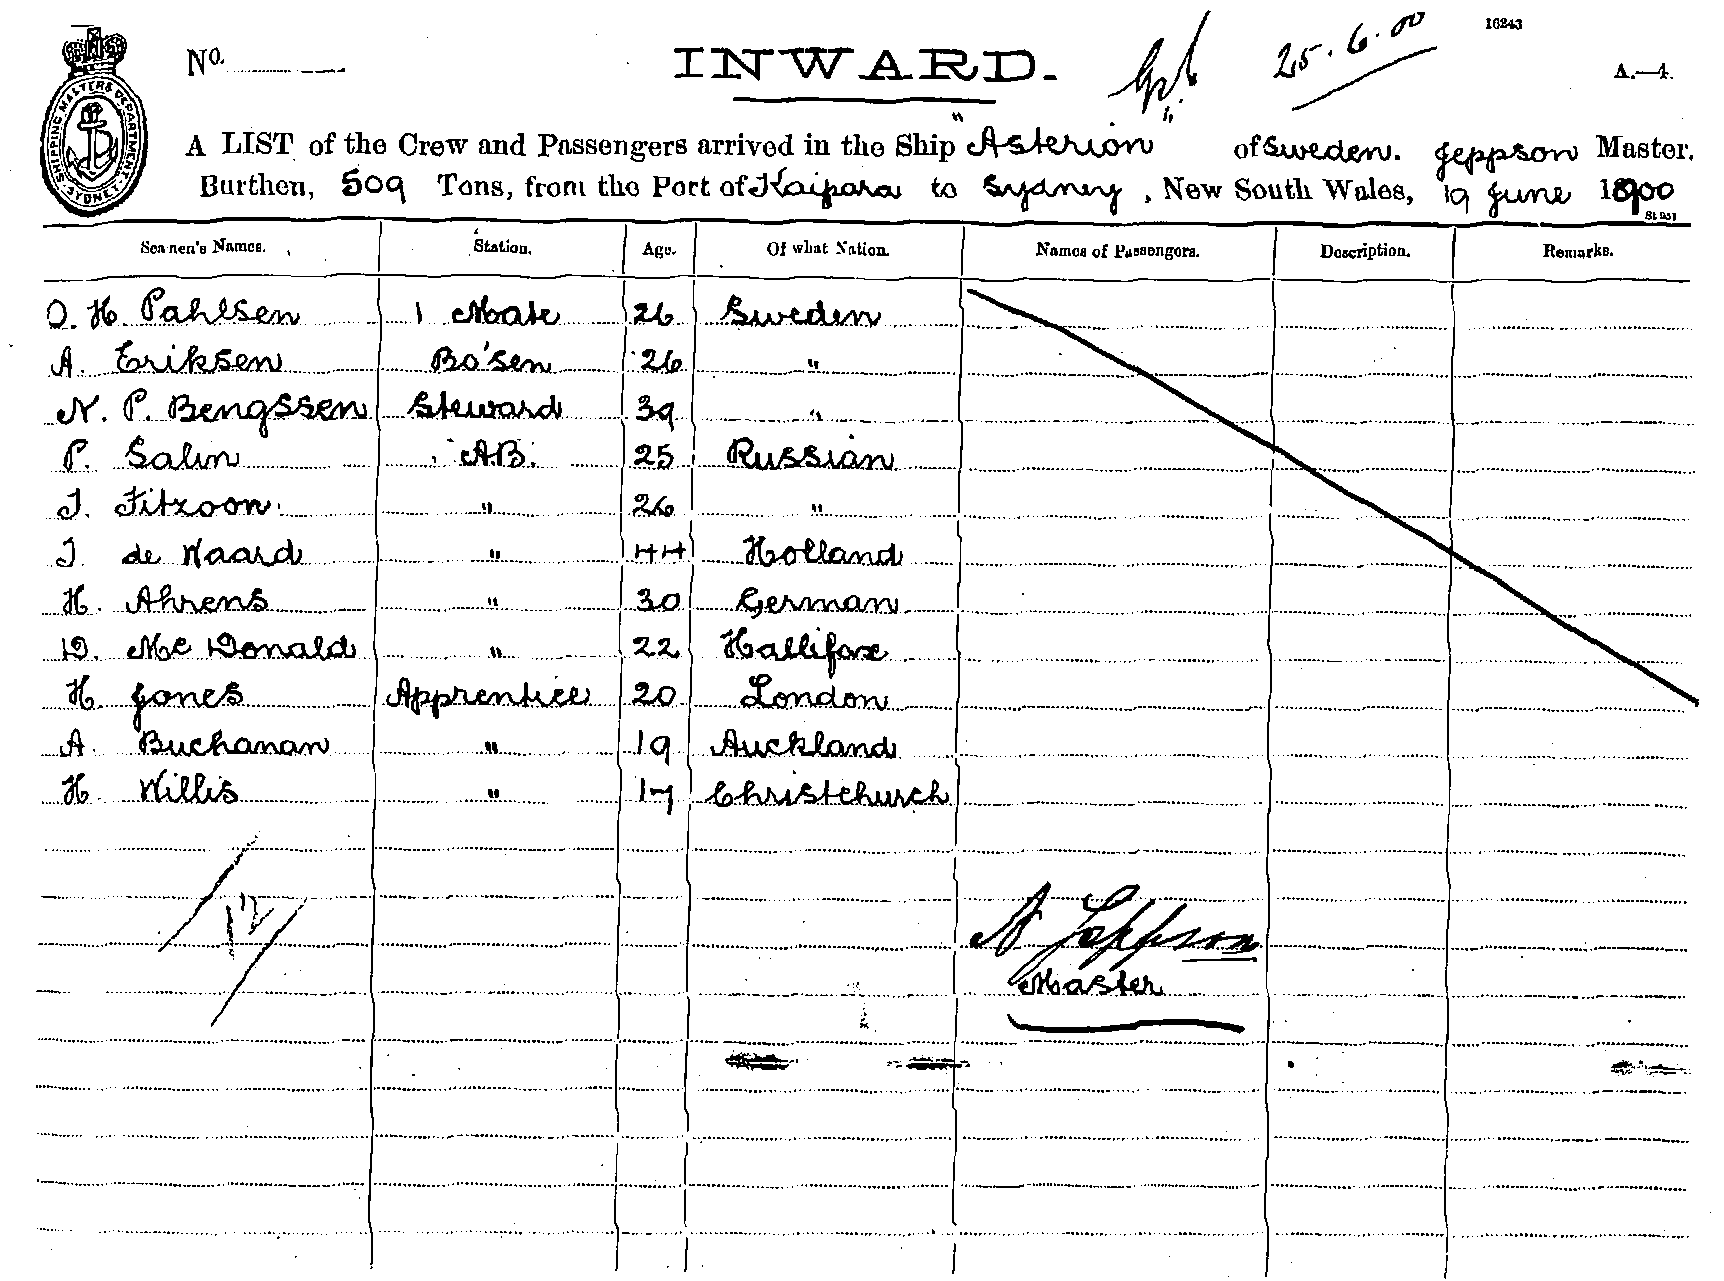 16243
No.
INWARD.
25.6.00
A.—4.
SHIPPING MASTERS DEPARTMENT SYDNEY
A LIST of the Crew and Passengers arrived in the Ship "Asterion" of Sweden. Jeppson Master,
Burthen, 509 Tons, from the Port of Kaipara to Sydney, New South Wales, 19 June 1900
Seamen's Names. Station. Age. Of what Nation. Names of Passengers. Description. Remarks.
O. H. Pahlsen 1 Mate 26 Sweden
A. Eriksen Bo'sen 26 "
N. P. Bengssen Steward 39 "
P. Salin A.B. 25 Russian
J. Fitzoon " 26 "
J. de Waard " 44 Holland
H. Ahrens " 30 German
D. Mc Donald " 22 Hallifax
H. Jones Apprentice 20 London
A. Buchanan " 19 Auckland
H. Willis " 17 Christchurch
12
N Jeppson
Master